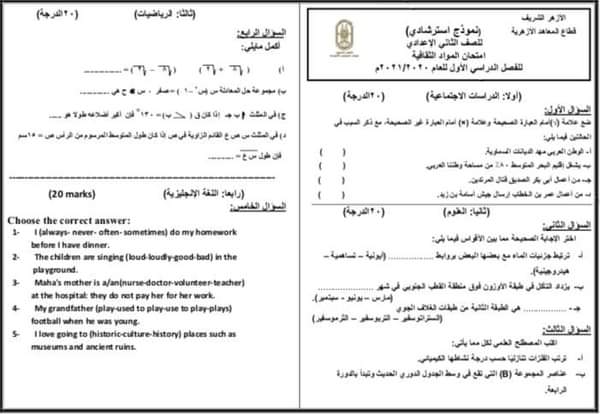 الأزهر الشريف
قطاع المعاهد الأزهرية
(نموذج استرشادي)
للصف الثاني الإعدادي
امتحان المواد الثقافية
للفصل الدراسي الأول للعام ٢٠٢١/٢٠٢٠م
(أولا: الدراسات الاجتماعية) (٢٠الدرجة)
السؤال الأول:
ضع علامة (√) أمام العبارة الصحيحة وعلامة (×) أمام العبارة غير الصحيحة، مع ذكر السبب في
الحالتين فيما يلي:
أ- الوطن العربي مهد الديانات السماوية. ( )
ب- يشغل إقليم البحر المتوسط ٨٠٪ من مساحة وطننا العربي. ( )
جـ- من أعمال أبي بكر الصديق قتال المرتدين. ( )
د- من أعمال عمر بن الخطاب إرسال جيش أسامة بن زيد. ( )
(ثانيا: العلوم) (٢٠الدرجة)
السؤال الثاني:
اختر الإجابة الصحيحة مما بين الأقواس فيما يلي:
أ- ترتبط جزيئات الماء مع بعضها البعض بروابط ............. (أيونية – تساهمية –
هيدروجينية)
ب- يزداد التآكل في طبقة الأوزون فوق منطقة القطب الجنوبي في شهر ............
(مارس – يونيو - سبتمبر).
جـ- ................ هي الطبقة الثانية من طبقات الغلاف الجوي
(الستراتوسفير – التربوسفير – الثرموسفير)
السؤال الثالث:
اكتب المصطلح العلمي لكل مما يأتي:
أ- ترتب الفلزات تنازليًا حسب درجة نشاطها الكيميائي.
ب- عناصر المجموعة (B) التي تقع في وسط الجدول الدوري الحديث وتبدأ بالدورة
الرابعة.
(ثالثا: الرياضيات) (٢٠الدرجة)
السؤال الرابع:
أكمل مايلي:
ب) مجموعة حل المعادلة س (س٢ – ١) = صفر ، س ∈ ح هي ..............
ج) في المثلث أ ب جـ إذا كان ق (ب) = ١٣٠° فإن أكبر أضلاعه طولا هو ....
د) في المثلث س ص ع القائم الزاوية في ص إذا كان طول المتوسط المرسوم من الرأس ص = ١٥سم
فإن طول س ع = ..............
(رابعا: اللغة الإنجليزية) (20 marks)
السؤال الخامس:
Choose the correct answer:
1- I (always- never- often- sometimes) do my homework
before I have dinner.
2- The children are singing (loud-loudly-good-bad) in the
playground.
3- Maha's mother is a/an(nurse-doctor-volunteer-teacher)
at the hospital: they do not pay her for her work.
4- My grandfather (play-used to play-use to play-plays)
football when he was young.
5- I love going to (historic-culture-history) places such as
museums and ancient ruins.